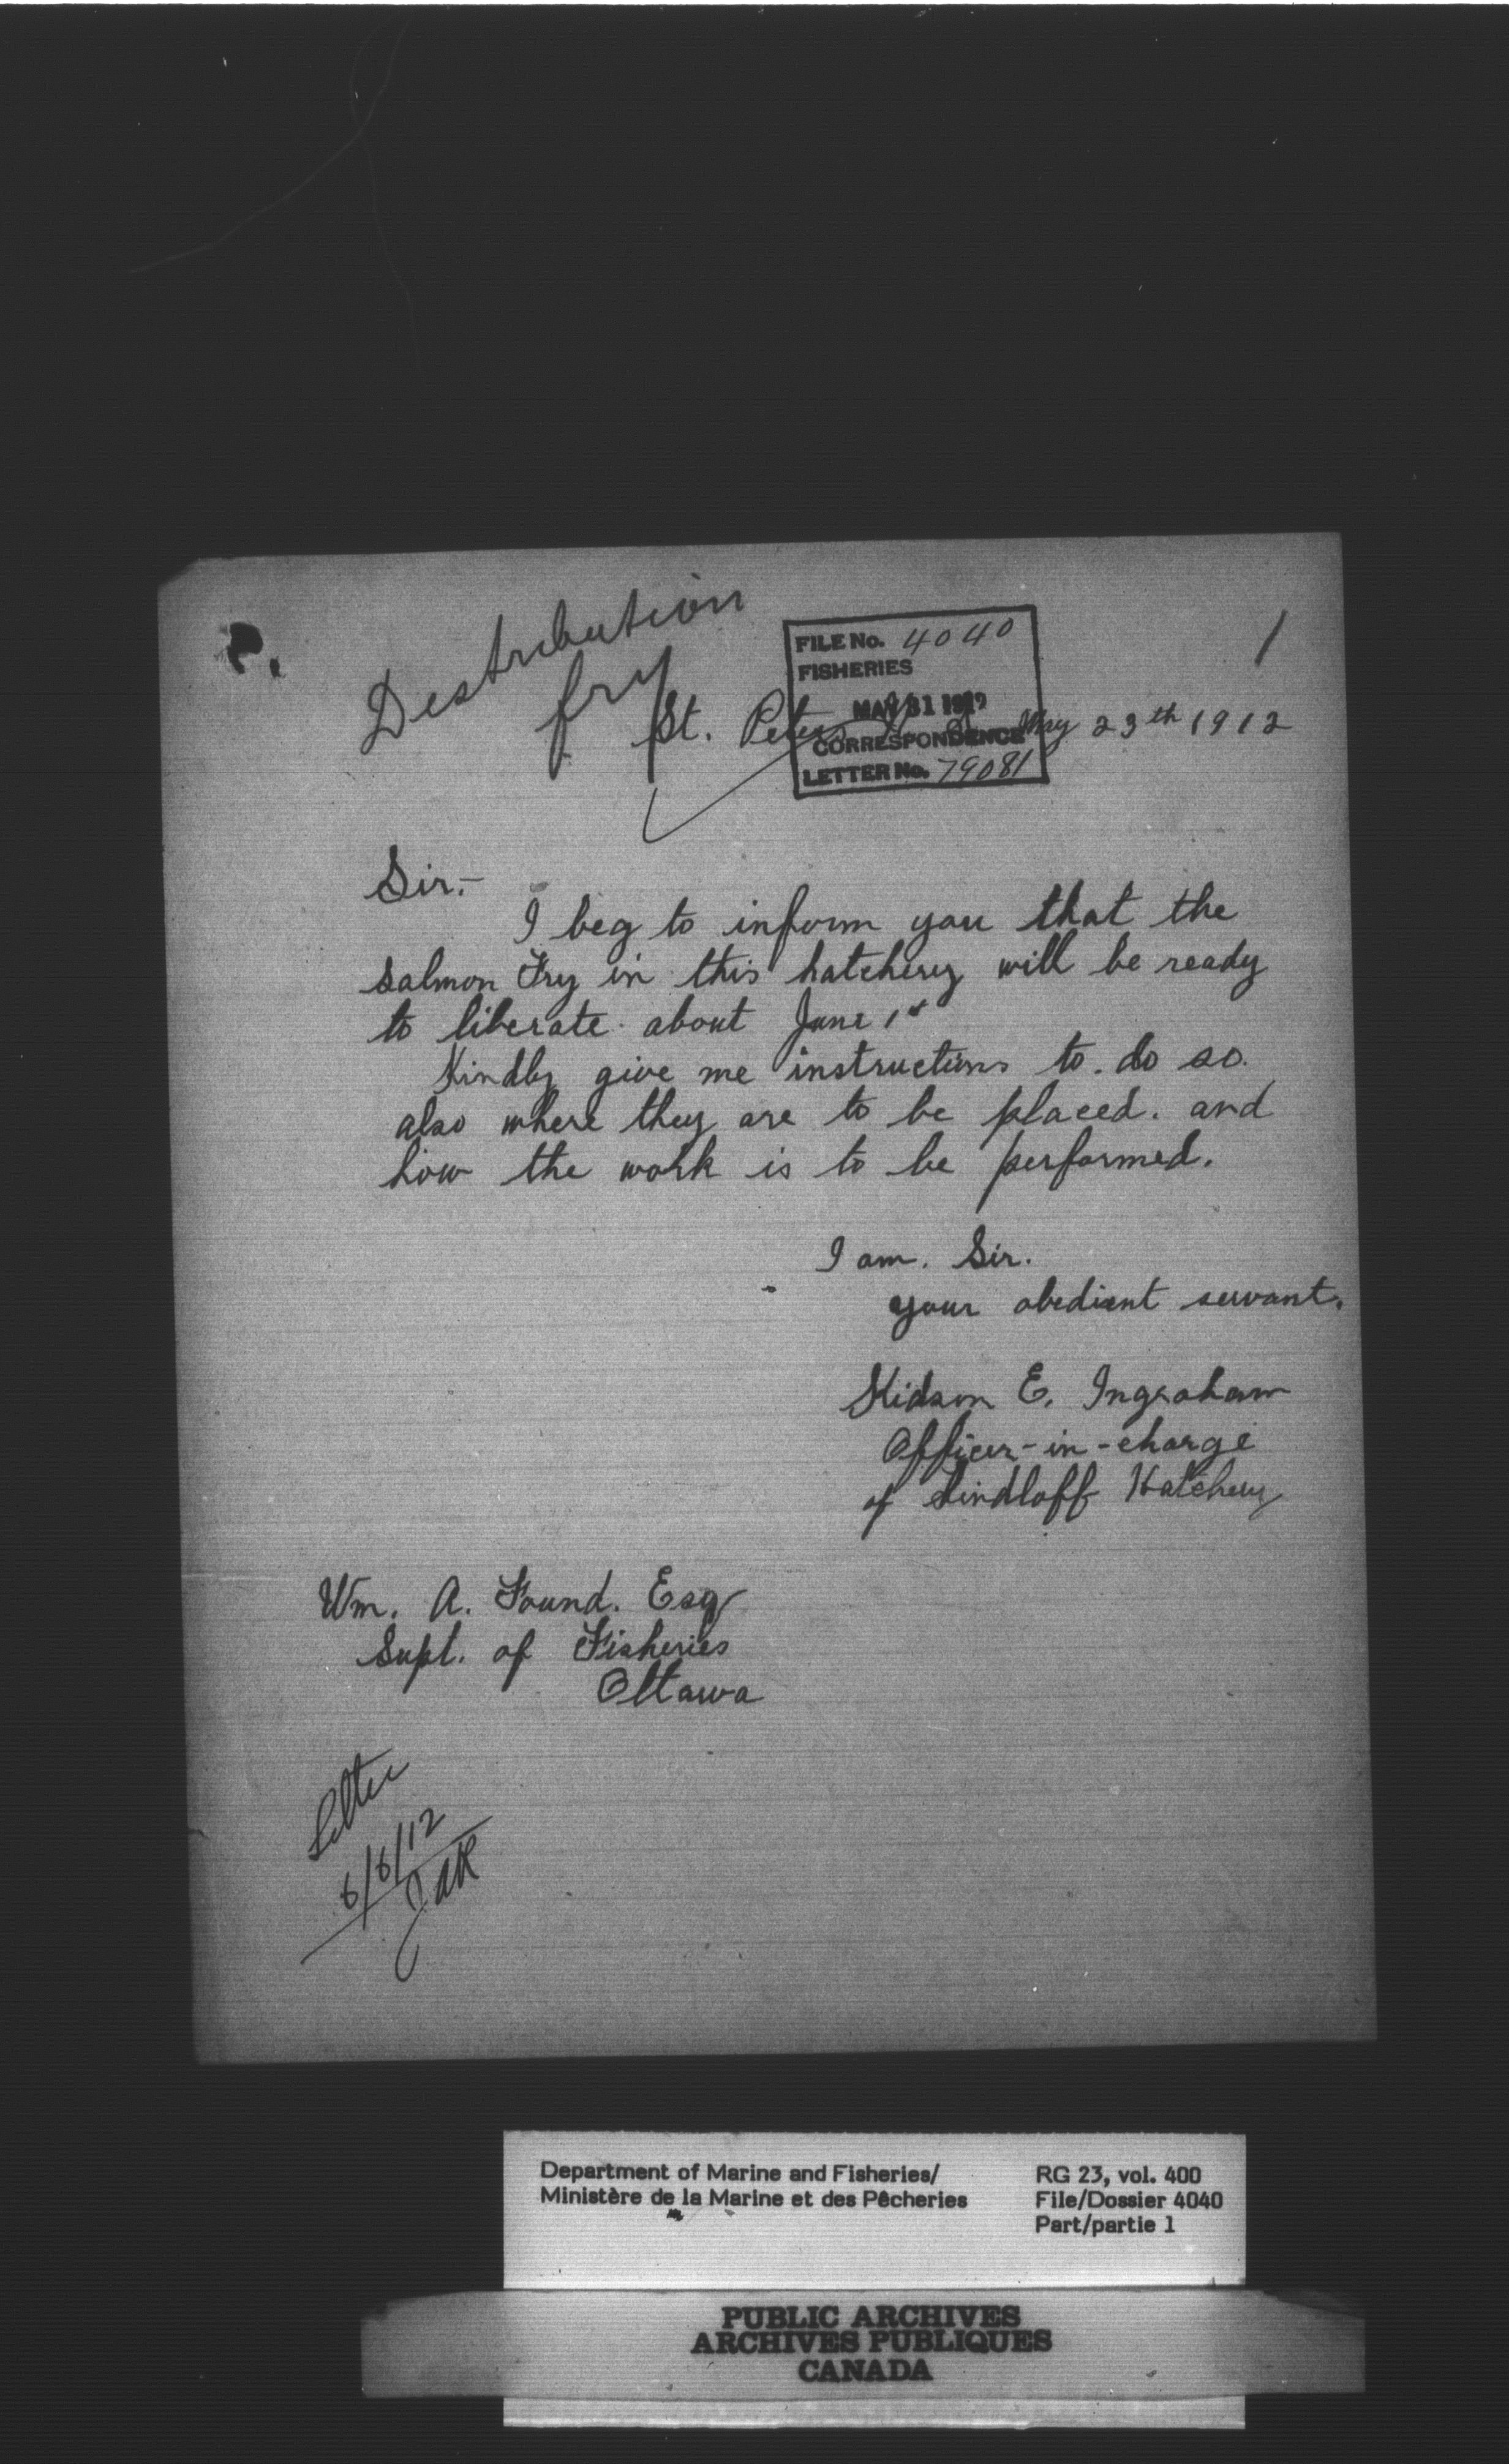 Distribution
fry
1
FILE No. 4040
FISHERIES
MAY 31 1912
CORRESPONDENCE
LETTER No. 79081
St. Peters May 23th 1912
Sir.-
I beg to inform you that the
salmon Fry in this hatchery will be ready
to liberate about June 1st
Kindly give me instructions to do so.
also where they are to be placed. and
how the work is to be performed.
I am. Sir.
your obedient servant.
E. Ingraham
Officer-in-charge
of Lindloff Hatchery
Wm. A. Found. Esq
Supt. of Fisheries
Ottawa
Letter
6/6/12
Department of Marine and Fisheries/
Ministère de la Marine et des Pêcheries
RG 23, vol. 400
File/Dossier 4040
Part/partie 1
PUBLIC ARCHIVES
ARCHIVES PUBLIQUES
CANADA